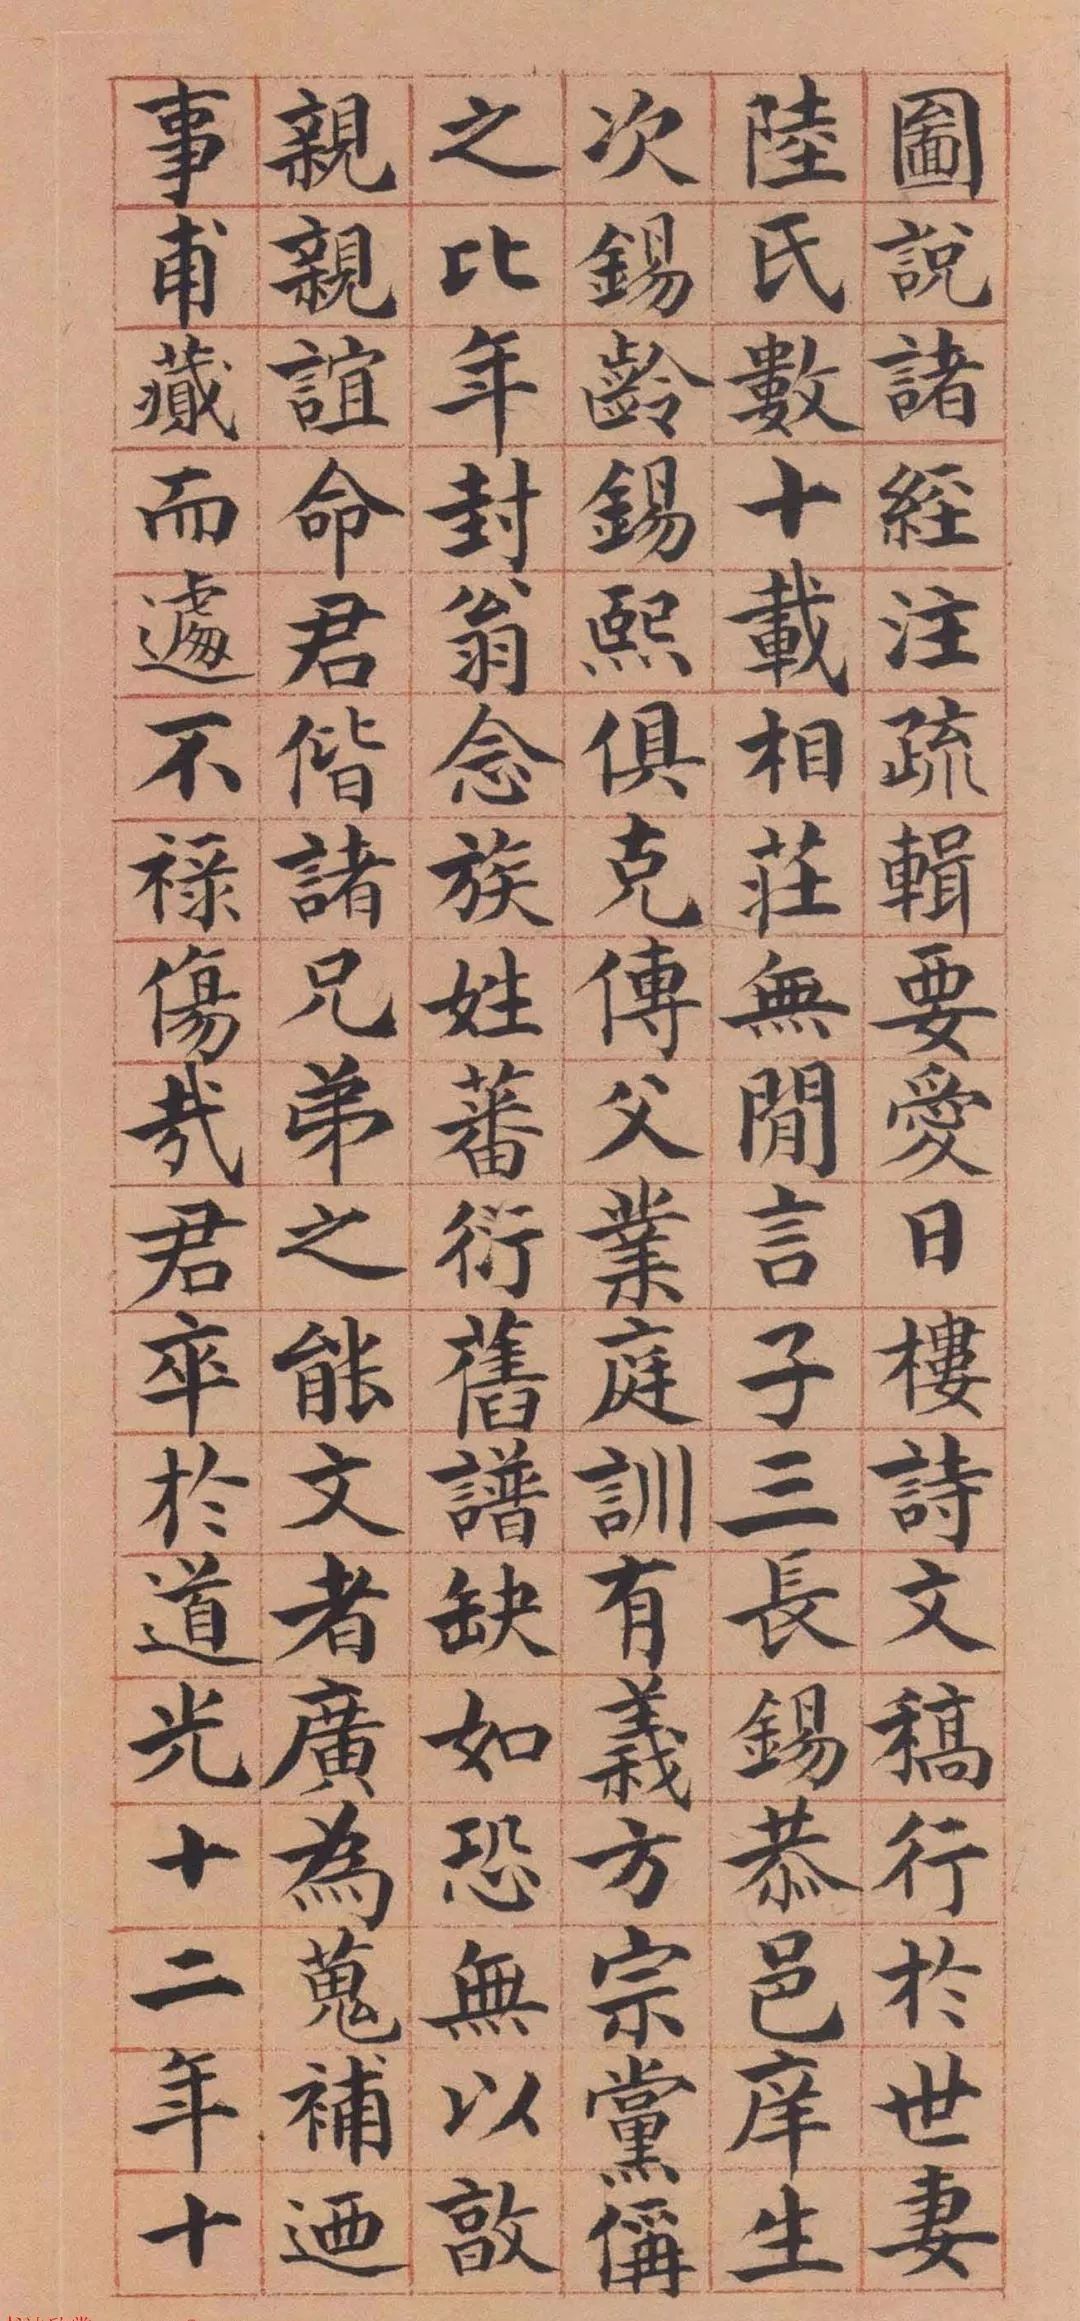 圖說諸經注疏輯要愛日樓詩文稿行於世妻
陸氏數十載相莊無閒言子三長錫恭邑庠生
次錫齡錫熙俱克傳父業庭訓有義方宗黨偁
之比年封翁念族姓蕃衍舊譜缺如恐無以敦
親親誼命君偕諸兄弟之能文者廣為蒐補迺
事甫藏而遽不祿傷哉君卒於道光十二年十